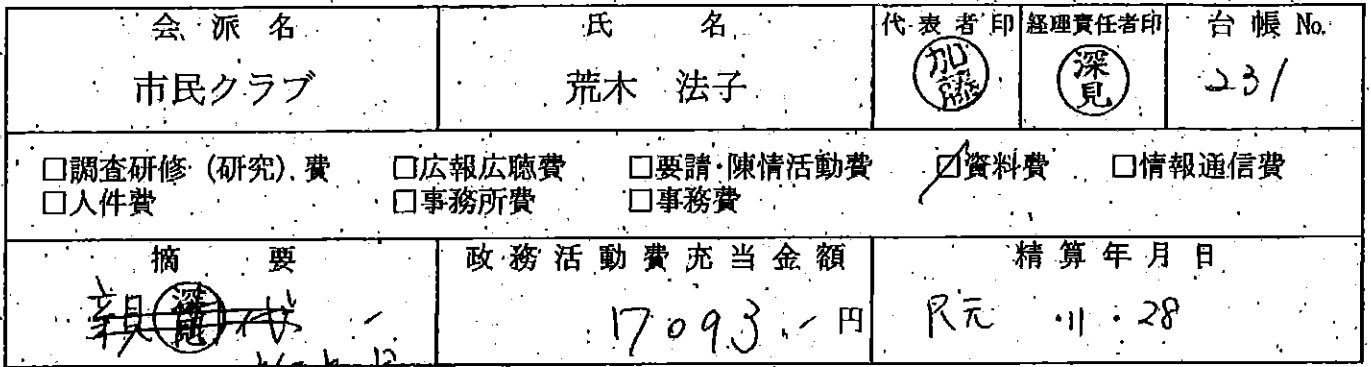 会派名 氏名 代表者印 経理責任者印 台帳No.
市民クラブ 荒木 法子 加藤 深見 231
□調査研修(研究)費 □広報広聴費 □要請・陳情活動費 ☑資料費 □情報通信費
□人件費 □事務所費 □事務費
摘要 政務活動費充当金額 精算年月日
17093.-円 R元・11・28